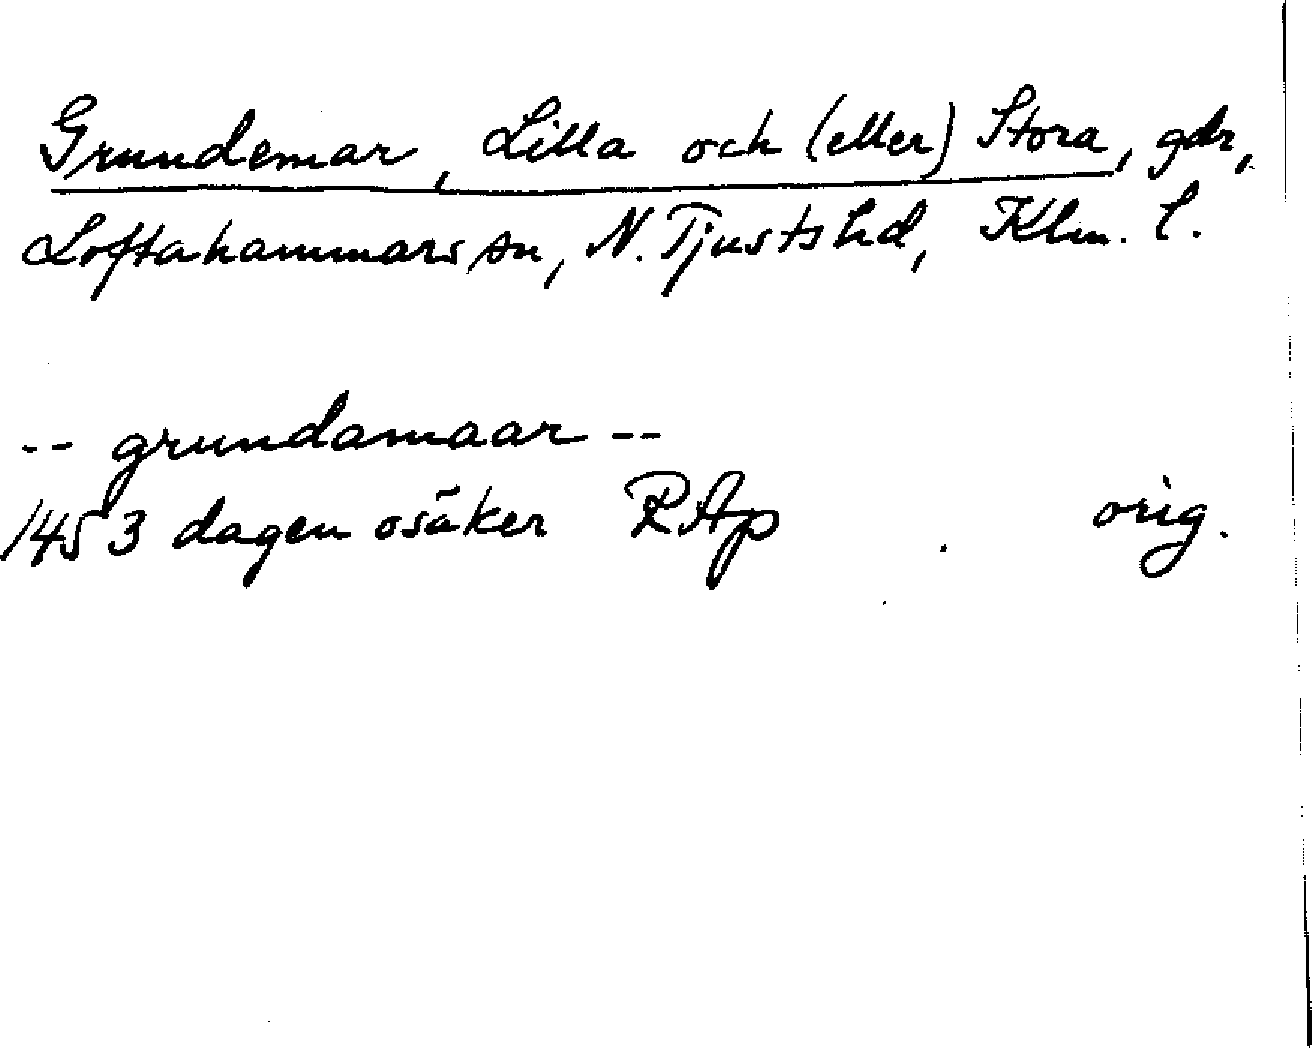 Grundemar, Lilla och (eller) Stora, gdr,
Loftahammars sn, N. Tjusts hd, Klm. l.
-- grundamaar --
1453 dagen osäker RAp orig.